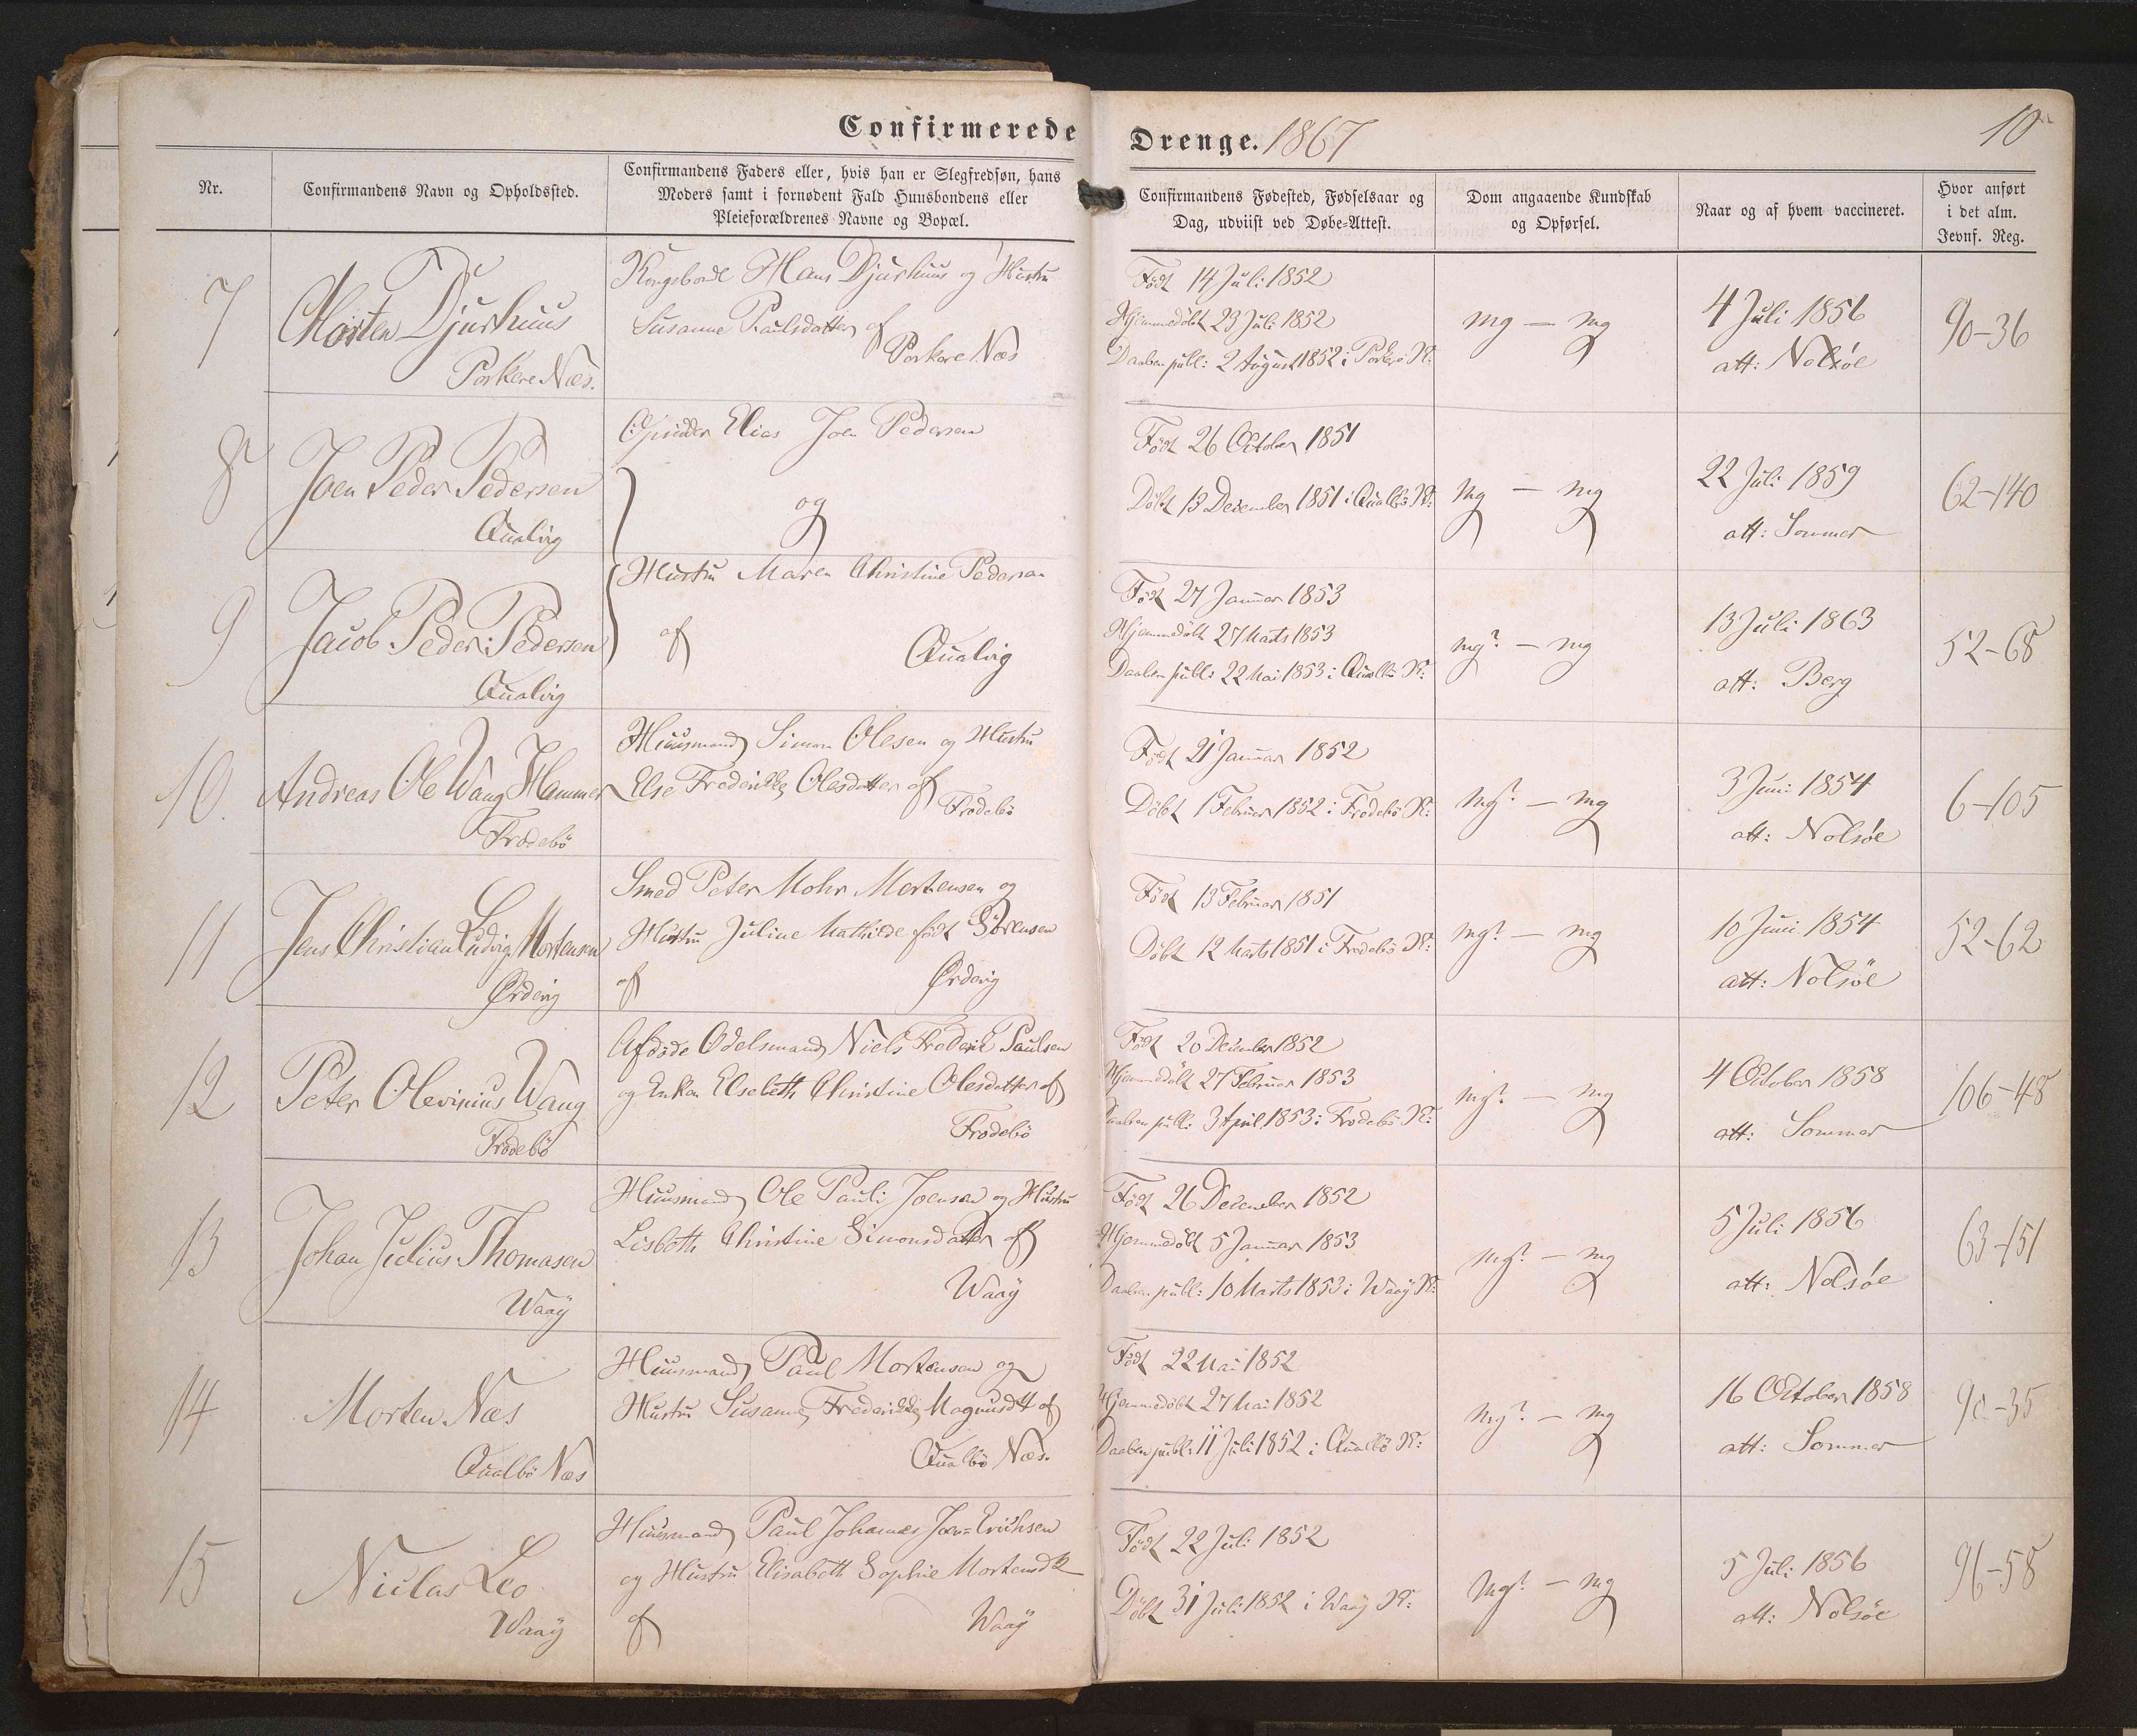 Confirmerede Drenge. 1867
10
Nr.
Confirmandens Navn og Opholdssted.
Confirmandens Faders eller, hvis han er Slegfredsøn, hans
Moders samt i fornødent Fald Huusbondens eller
Pleieforældrenes Navne og Bopæl.
Confirmandens Fødested, Fødselsaar og
Dag, udviist ved Døbe-Attest.
Dom angaaende Kundskab
og Opførsel.
Naar og af hvem vaccineret.
Hvor anført
i det alm.
Jevnf. Reg.
7
Morten Djurhuus
Porkere Næs.
Kongsbonde Hans Djurhuus og Hustru
Susanne Paulsdatter af
Porkere Næs
Født 14 Juli 1852
Hjemmedøbt 23 Juli 1852
Daaben publ: 2 August 1852 i Porkere K:
mg — mg
4 Juli 1856
att: Nolsøe
90-36
8
Joen Peder Pedersen
Qualvig
Opsidder Elias Joen Pedersen
og
Født 26 October 1851
Døbt 13 December 1851 i Qualbø K:
mg — mg
22 Juli 1859
att: Sommer
62-140
9
Jacob Peder Pedersen
Qualvig
Hustru Maren Christine Pedersen
af Qualvig
Født 27 Januar 1853
Hjemmedøbt 27 Marts 1853
Daaben publ: 22 Mai 1853 i Qualbø K:
mg? — mg
13 Juli 1863
att: Berg
52-68
10.
Andreas Ole Wang Hammer
Frodebø
Huusmand Simon Olesen og Hustru
Else Frederikke Olesdatter af
Frodebø
Født 21 Januar 1852
Døbt 1 Februar 1852 i Frodebø K:
mg? — mg
3 Juni 1854
att: Nolsøe
6-105
11
Jens Christian Ludvig Mortensen
Ørdevig
Smed Peter Mohr Mortensen og
Hustru Juline Mathilde født Sørensen
af Ørdevig
Født 13 Februar 1851
Døbt 12 Marts 1851 i Frodebø K:
mg? — mg
10 Juni 1854
att: Nolsøe
52-62
12
Peter Olevinius Wang
Frodebø
Afdøde Odelsmand Niels Frederik Paulsen
og Enken Elsebeth Christine Olesdatter af
Frodebø
Født 20 December 1852
Hjemmedøbt 27 Februar 1853
Daaben publ: 3 April 1853 i Frodebø K:
mg? — mg
4 October 1858
att: Sommer
106-48
13
Johan Julius Thomasen
Waag
Huusmand Ole Pauli Joensen og Hustru
Lisbeth Christine Simonsdatter af
Waag
Født 26 December 1852
Hjemmedøbt 5 Januar 1853
Daaben publ: 10 Marts 1853 i Waag K:
mg? — mg
5 Juli 1856
att: Nolsøe
63-151
14
Morten Næs
Qualbø Næs
Huusmand Paul Mortensen og
Hustru Susanne Frederikke Magnusdtt af
Qualbø Næs.
Født 22 Mai 1852
Hjemmedøbt 27 Mai 1852
Daaben publ: 11 Juli 1852 i Qualbø K:
mg? — mg
16 October 1858
att: Sommer
90-35
15
Niclas Leo
Waag
Huusmand Paul Johannes Joen-Erichsen
og Hustru Elisabeth Sophie Mortensdtt
af Waag
Født 22 Juli 1852
Døbt 31 Juli 1852 i Waag K:
mg? — mg
5 Juli 1856
att: Nolsøe
96-58